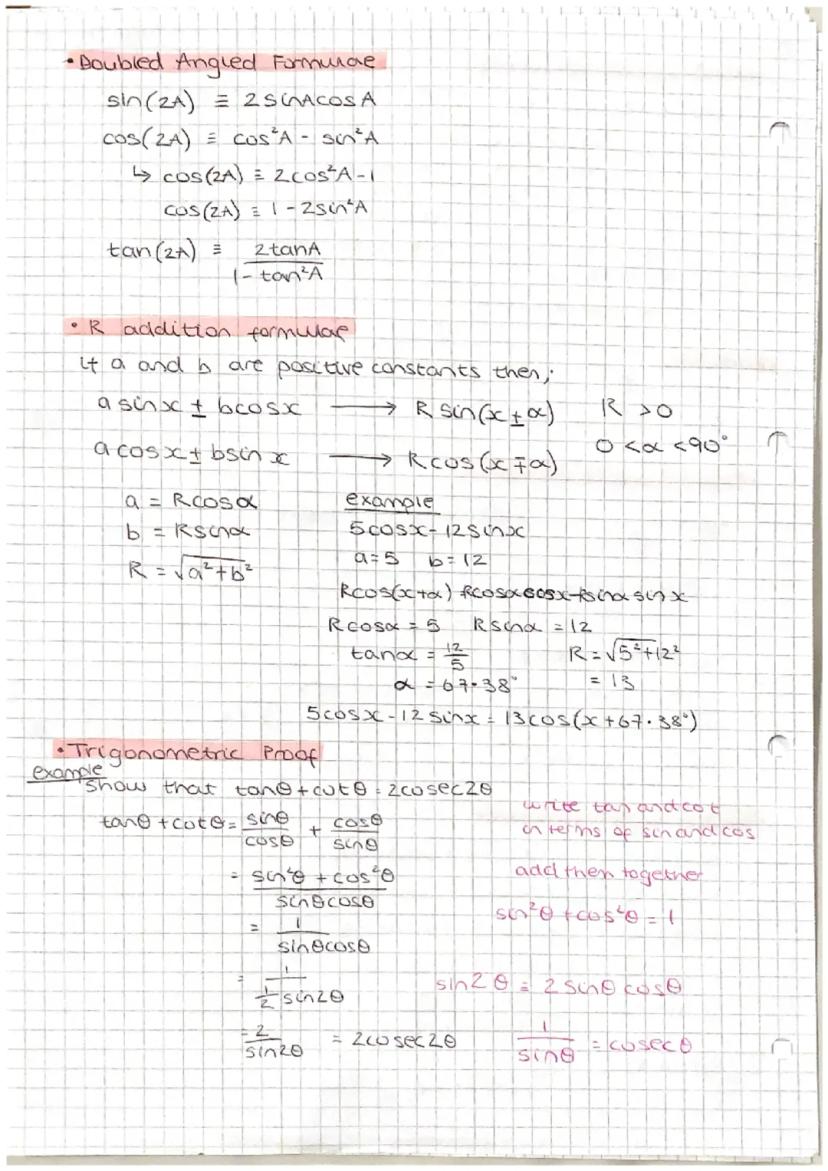 • Doubled Angled Formulae
sin(2A) ≡ 2sinAcosA
cos(2A) ≡ cos²A - sin²A
↳ cos(2A) ≡ 2cos²A-1
cos(2A) ≡ 1-2sin²A
tan(2A) ≡ 2tanA / 1-tan²A
• R addition formulae
if a and b are positive constants then;
asinx ± bcosx → Rsin(x±α) R >0
acosx ± bsinx → Rcos(x∓α) 0<α<90°
a = Rcosα example
b = Rsinα 5cosx-12sinx
R = √a²+b² a=5 b=12
Rcos(x+α) Rcosαcosx-Rsinαsinx
Rcosα = 5 Rsinα = 12
tanα = 12/5 R = √5²+12²
α = 67.38° = 13
5cosx-12sinx = 13cos(x+67.38°)
• Trigonometric Proof
example
show that tanθ+cotθ = 2cosec2θ
tanθ+cotθ = sinθ/cosθ + cosθ/sinθ write tan and cot in terms of sin and cos
= sin²θ+cos²θ / sinθcosθ add then together
= 1 / sinθcosθ sin²θ+cos²θ=1
= 1 / ½sin2θ sin2θ = 2sinθcosθ
= 2 / sin2θ = 2cosec2θ 1/sinθ = cosecθ